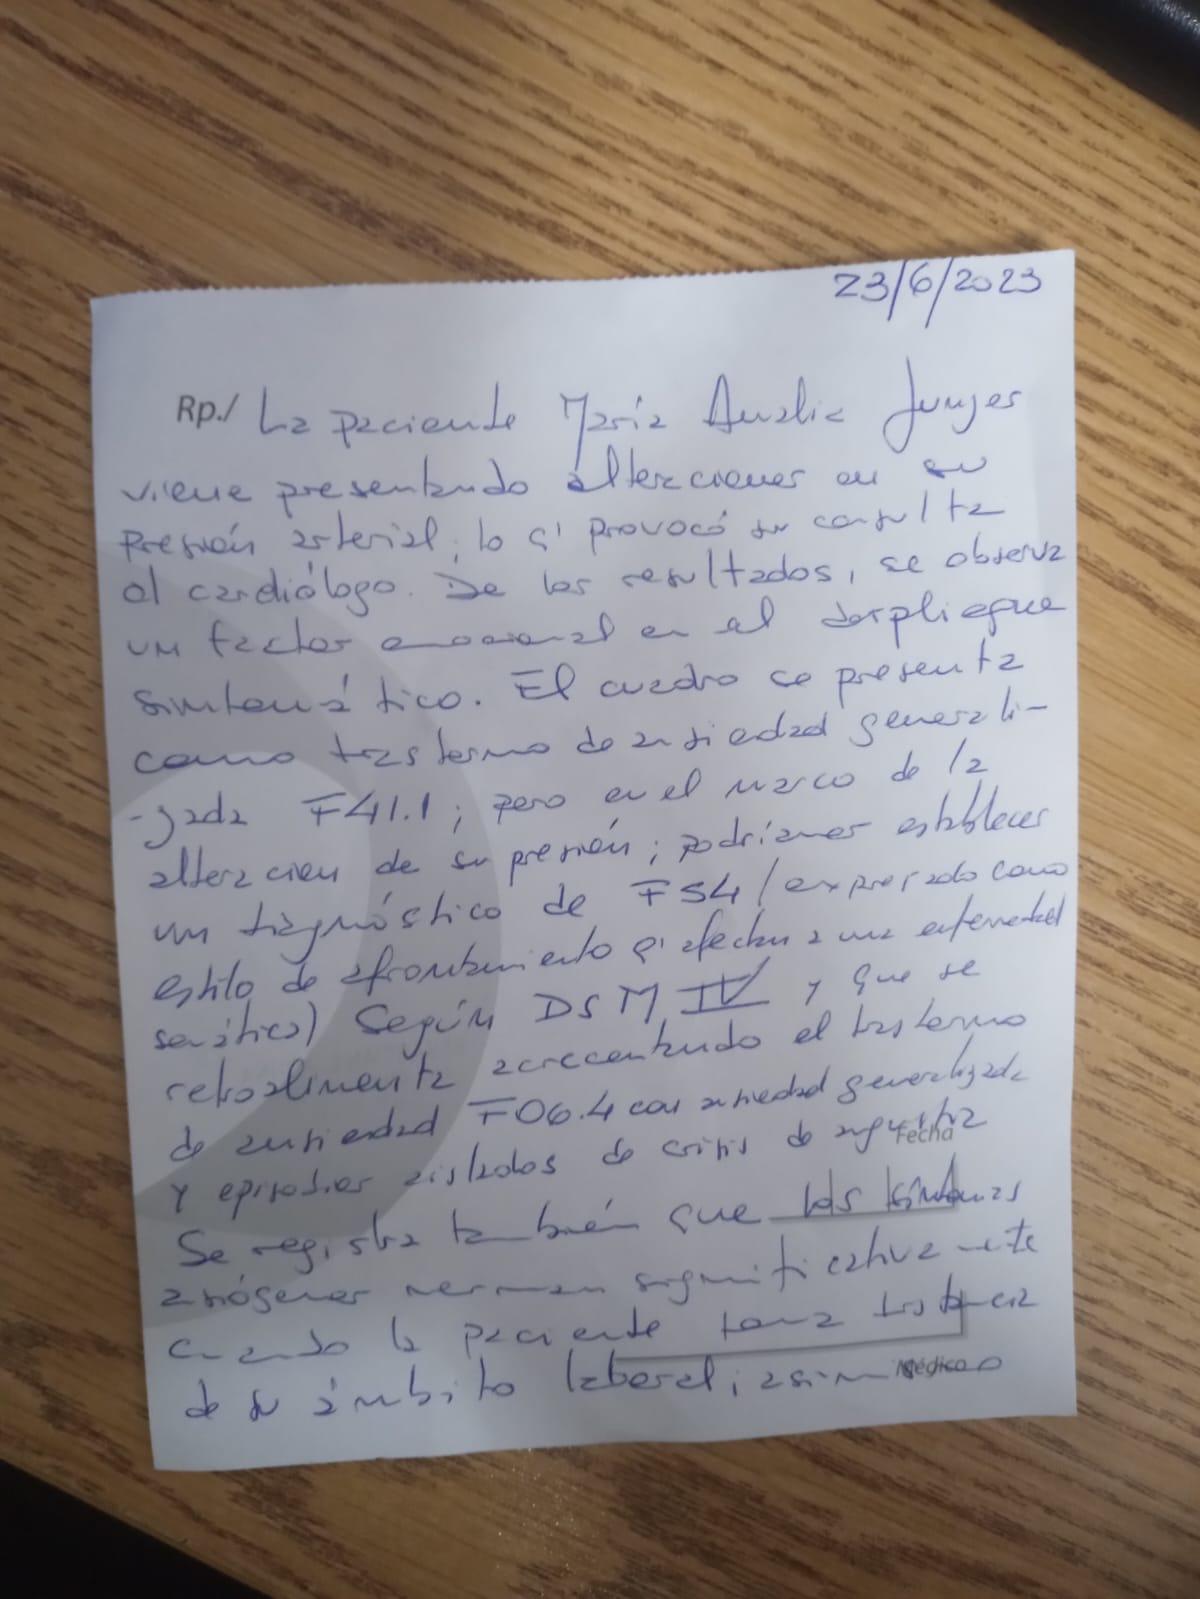 23/6/2023
Rp./ La paciente María Amalia Junges
viene presentando alteraciones en su
presión arterial, lo q' provocó su consulta
al cardiólogo. De los resultados, se observa
un factor emocional en el despliegue
sintomático. El cuadro se presenta
como trastorno de ansiedad generali-
-zada F41.1; pero en el marco de la
alteración de su presión; podríamos establecer
un diagnóstico de F54 (expresado como
estilo de afrontamiento q' afectan a una enfermedad
somática) Según DSM IV y que se
retroalimenta acrecentando el trastorno
de ansiedad F06.4 con ansiedad generalizada
y episodios aislados de crisis de angustia
Fecha
Se registra también que los síntomas
ansiógenos merman significativamente
cuando la paciente toma distancia
de su ámbito laboral; asimismo
Médico